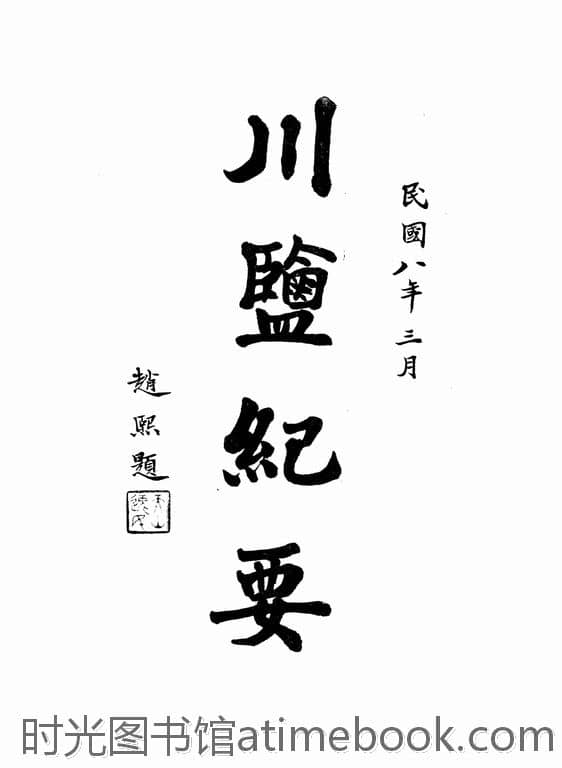 民國八年三月
川鹽紀要
趙熙題
时光图书馆atimebook.com